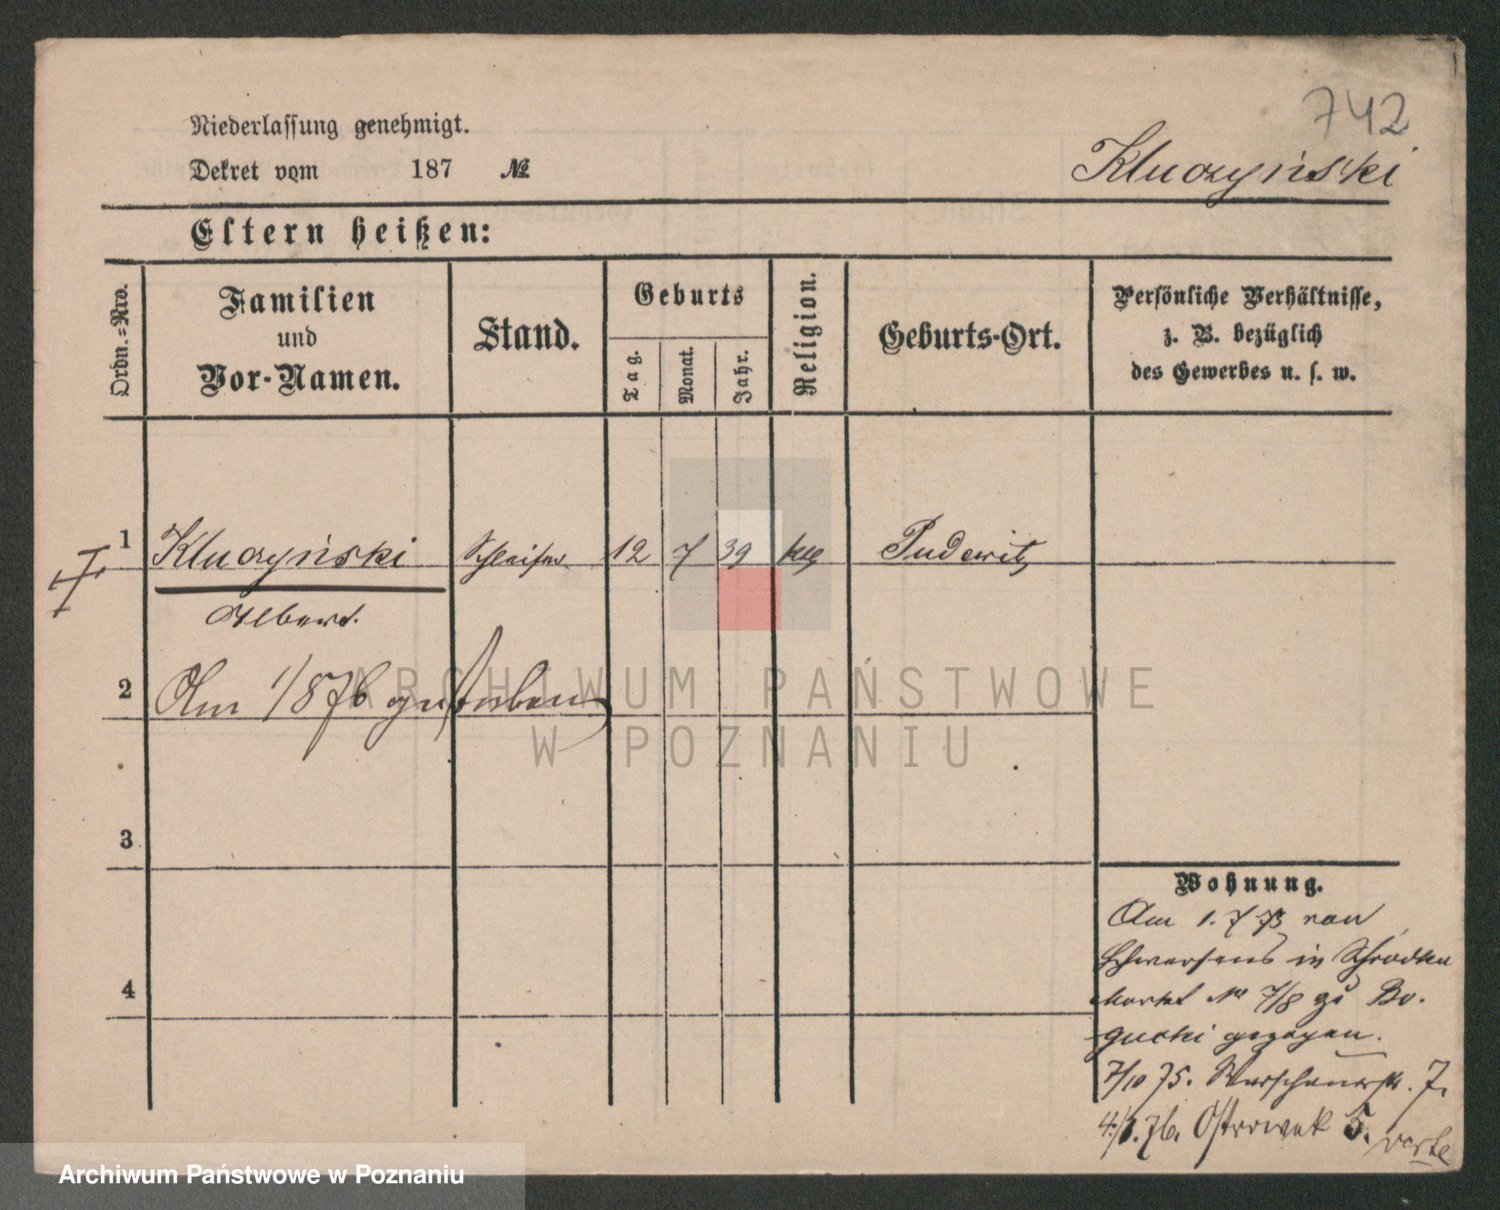 742
Niederlassung genehmigt.
Dekret vom 187 №
Kluczyński
Eltern heißen:
Ordn.=Nro.
Familien
und
Vor-Namen.
Stand.
Geburts
Tag.
Monat.
Jahr.
Religion.
Geburts-Ort.
Persönliche Verhältnisse,
z. B. bezüglich
des Gewerbes u. s. w.
1 Kluczyński Schleifer 12 7 39 kth Pudewitz
Albert.
2 Am 1/8 76 gestorben
3
4
Wohnung.
Am 1. 7 73 von
Schwersens in Schrodka
Markt № 7/8 zu Bo-
gucki gezogen.
7/10 75. Warschauerstr. 7.
4/1. 76. Ostrowek 5. verte
ARCHIWUM PAŃSTWOWE
W POZNANIU
Archiwum Państwowe w Poznaniu